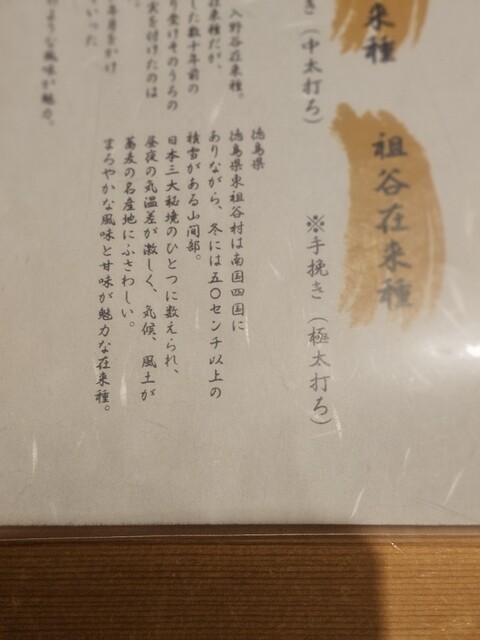 来種
き（中太打ち）
入野谷在来種。
在来種だが、
した数十年前の
り受けそのうちの
実を付けたのは
祖谷在来種
※手挽き（極太打ち）
徳島県
徳島県東祖谷村は南国四国に
ありながら、冬には五〇センチ以上の
積雪がある山間部。
日本三大秘境のひとつに数えられ、
昼夜の気温差が激しく、気候、風土が
蕎麦の名産地にふさわしい。
まろやかな風味と甘味が魅力な在来種。